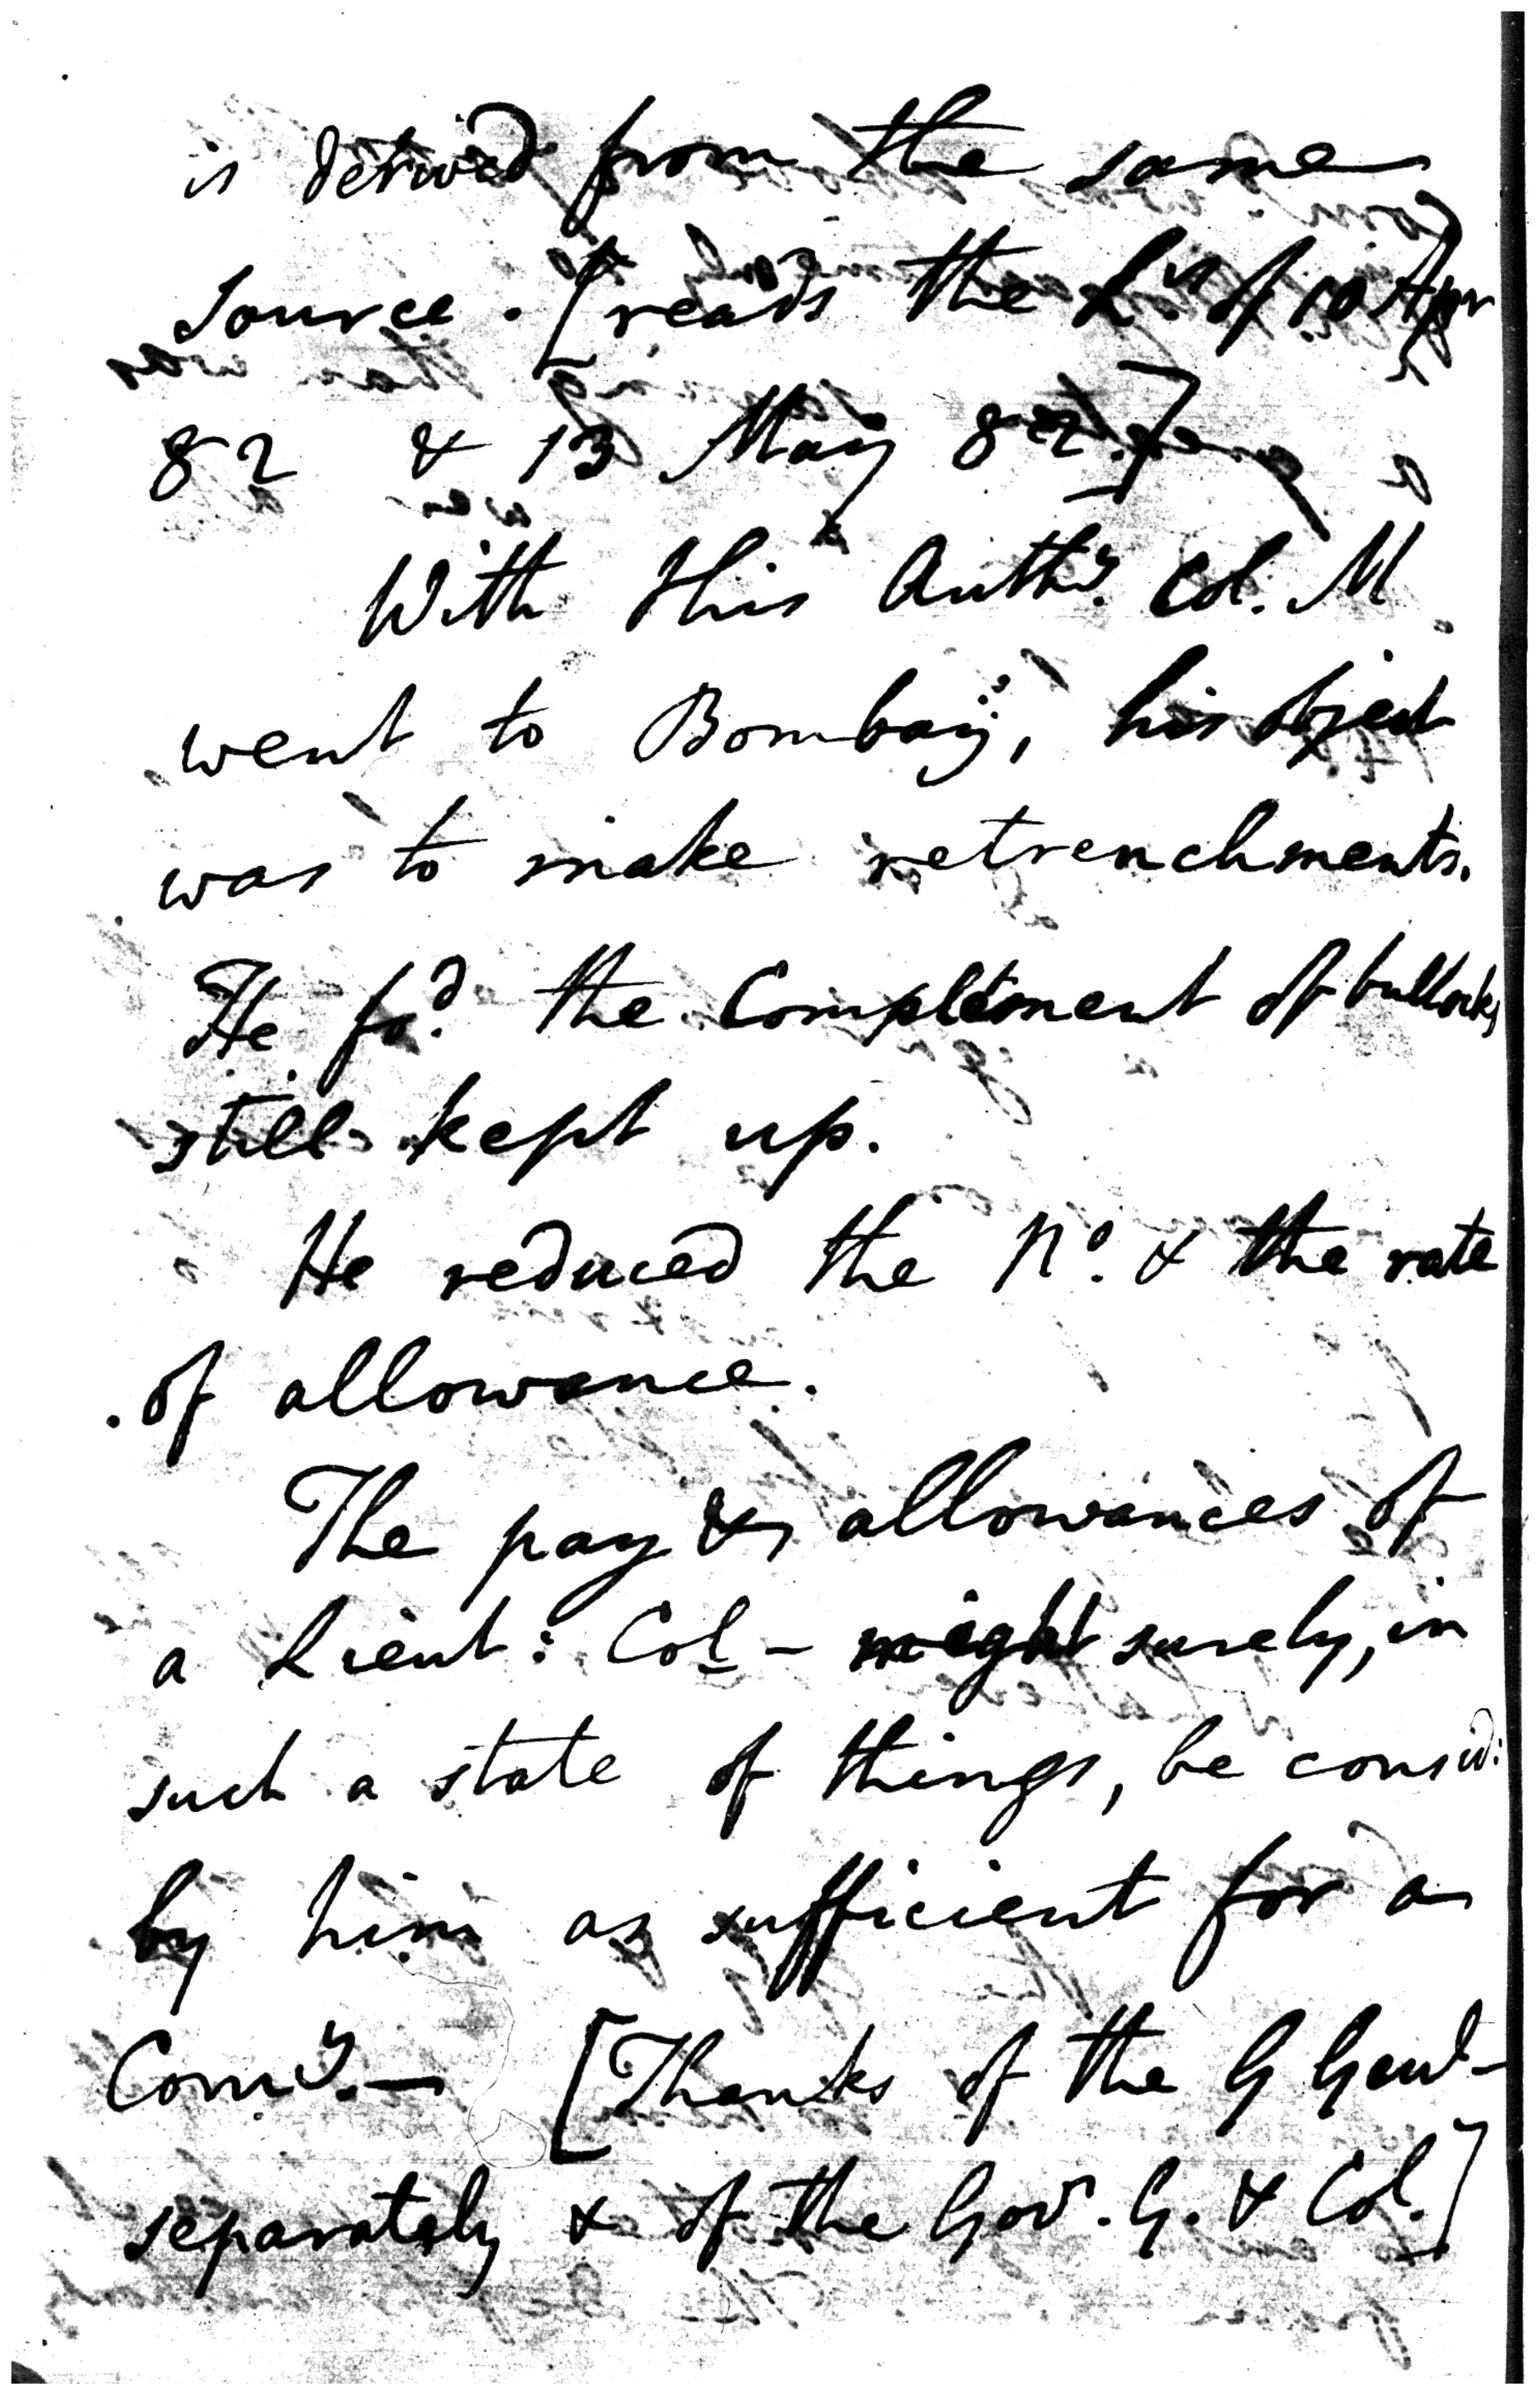 is derived from the same
source. [reads the Lrs of 10 Apr
82 & 13 May 82.]
With this Authy. Col. M
went to Bombay, his object
was to make retrenchments.
He fod. the Complement of bullocks
still kept up.
He reduced the No. & the rate
of allowance.
The pay & allowances of
a Lieut: Col - might surely, in
such a state of things, be consid:
by him as sufficient for a
Comy. — [Thanks of the G Genl -
separately & of the Govr. G. & Col.]